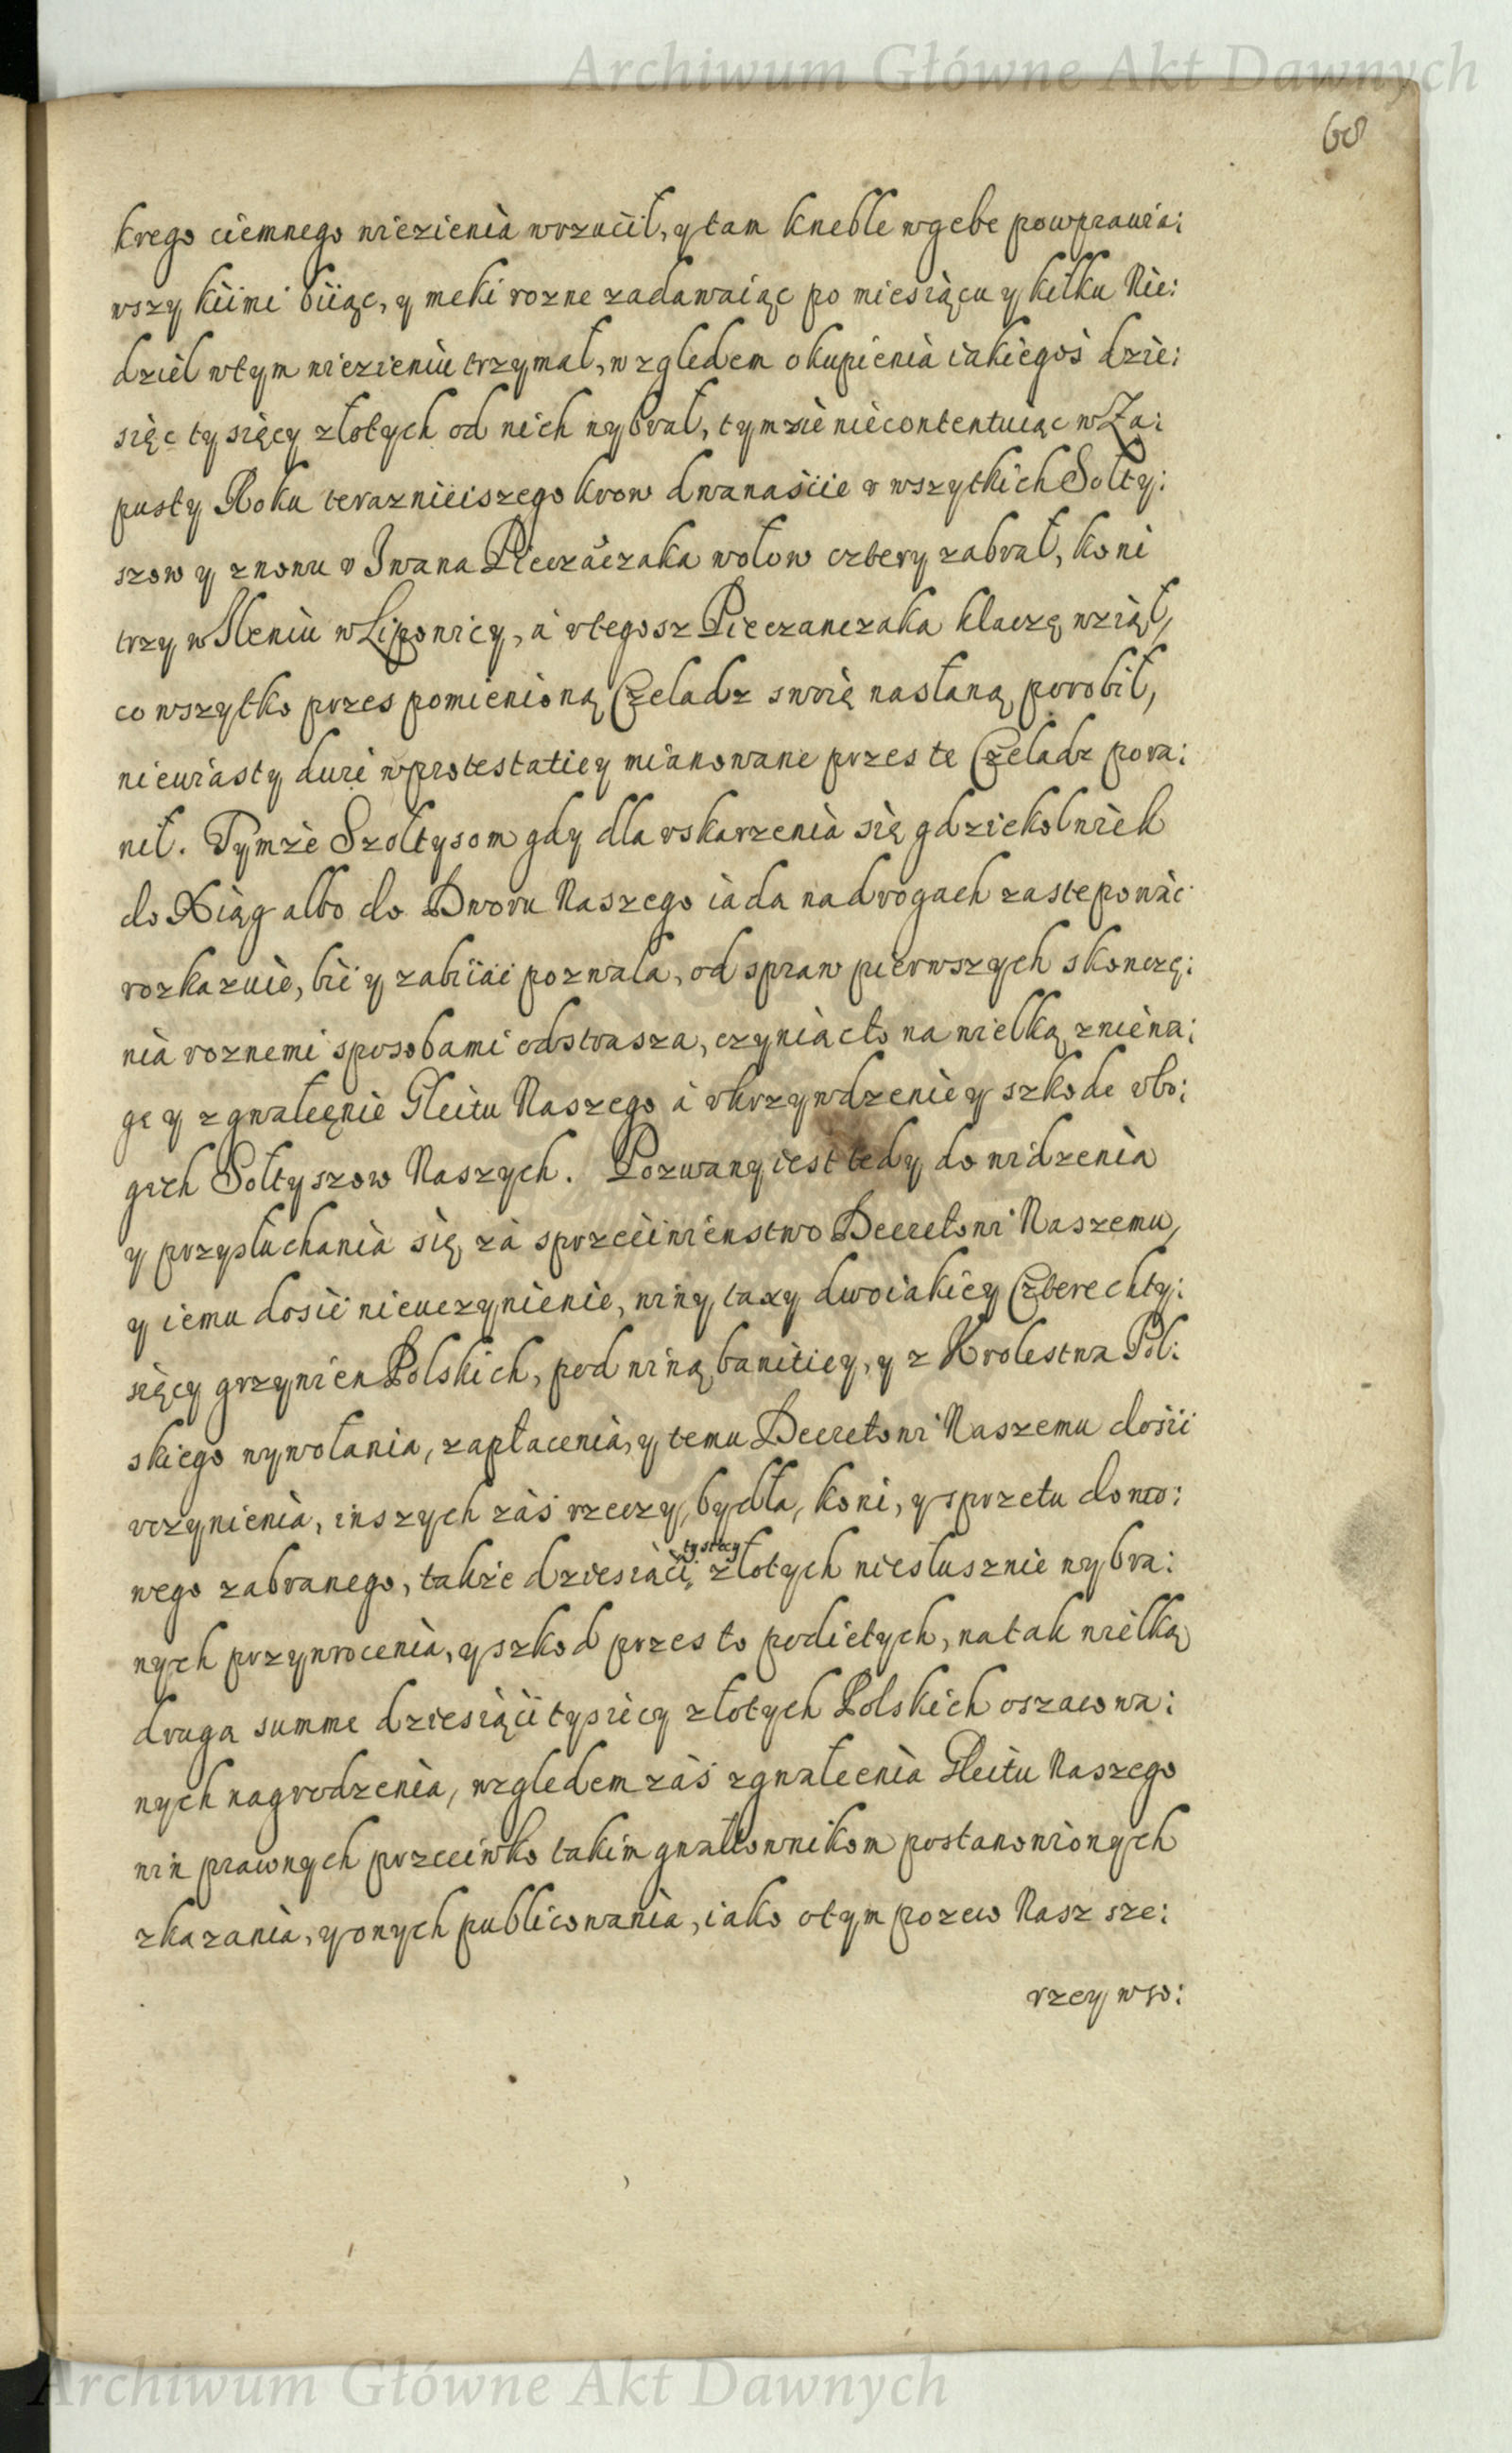 Archiwum Główne Akt Dawnych
68
krego ciemnego wiezienia wrzucił, y tam kneble w gebe powprawia:
wszy kiimi biiąc, y meki rozne zadawaiąc po miesiącu y kilku Nie:
dziel w tym wiezieniu trzymał, względem okupienia iakiegoś dzie:
sięc tysięcy złotych od nich wybrał, tym sie niecontentuiąc w Za:
pusty Roku teraznieiszego krow dwanaście v wszytkich Sołty:
szow y znowu v Iwana Pieczączaka wołow cztery zabrał, koni
trzy w Sieniu w Lipowicy, a v tegosz Pieczanczaka klaczę wziął,
co wszytko przes pomienioną Czeladz swoię nasłaną porobił,
niewiasty dwie w protestatiey mianowane przes te Czeladz pora:
nił. Tymże Szołtysom gdy dla vskarzenia się gdziekolwiek
do Xiąg albo do Dworu Naszego iada na drogach zastepowac
rozkazuie, bić y zabiiać pozwala, od spraw pierwszych skonczę:
nia roznemi sposobami odstrasza, czyniąc to na wielką zniewa:
gę y zgwałcęnie Gleitu Naszego a vkrzywdzenie y szkode vbo:
gich Sołtyszow Naszych. Pozwany iest tedy do widzenia
y przysłuchania się za sprzeciwienstwo Decretowi Naszemu,
y iemu dosić nieuczynienie, winy taxy dwoiakiey Czterech ty:
sięcy grzywien Polskich, pod winą banitiey, y z Krolestwa Pol:
skiego wywołania, zapłacenia, y temu Decretowi Naszemu dosić
vczynienia, inszych zaś rzeczy, bydła, koni, y sprzetu domo:
wego zabranego, także dziesiąci tysięcy złotych niesłusznie wybra:
nych przywrocenia, y szkod przes to podietych, na tak wielką
druga summe dziesiąci tysięcy złotych Polskich oszacowa:
nych nagrodzenia, względem zaś zgwałcenia Gleitu Naszego
win prawnych przeciwko takim gwałtownikom postanowionych
zkazania, y onych publicowania, iako o tym pozew Nasz sze:
rzey w so:
Archiwum Główne Akt Dawnych